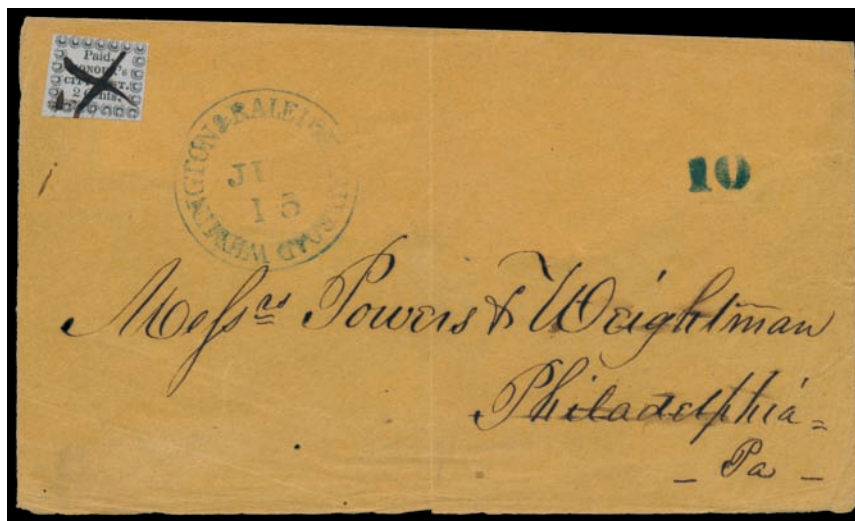 Paid.
CITY POST.
2 Cents.
WILMINGTON & RALEIGH RAILROAD
JU
15
10
Messrs Powers & Weightman
Philadelphia =
_ Pa _